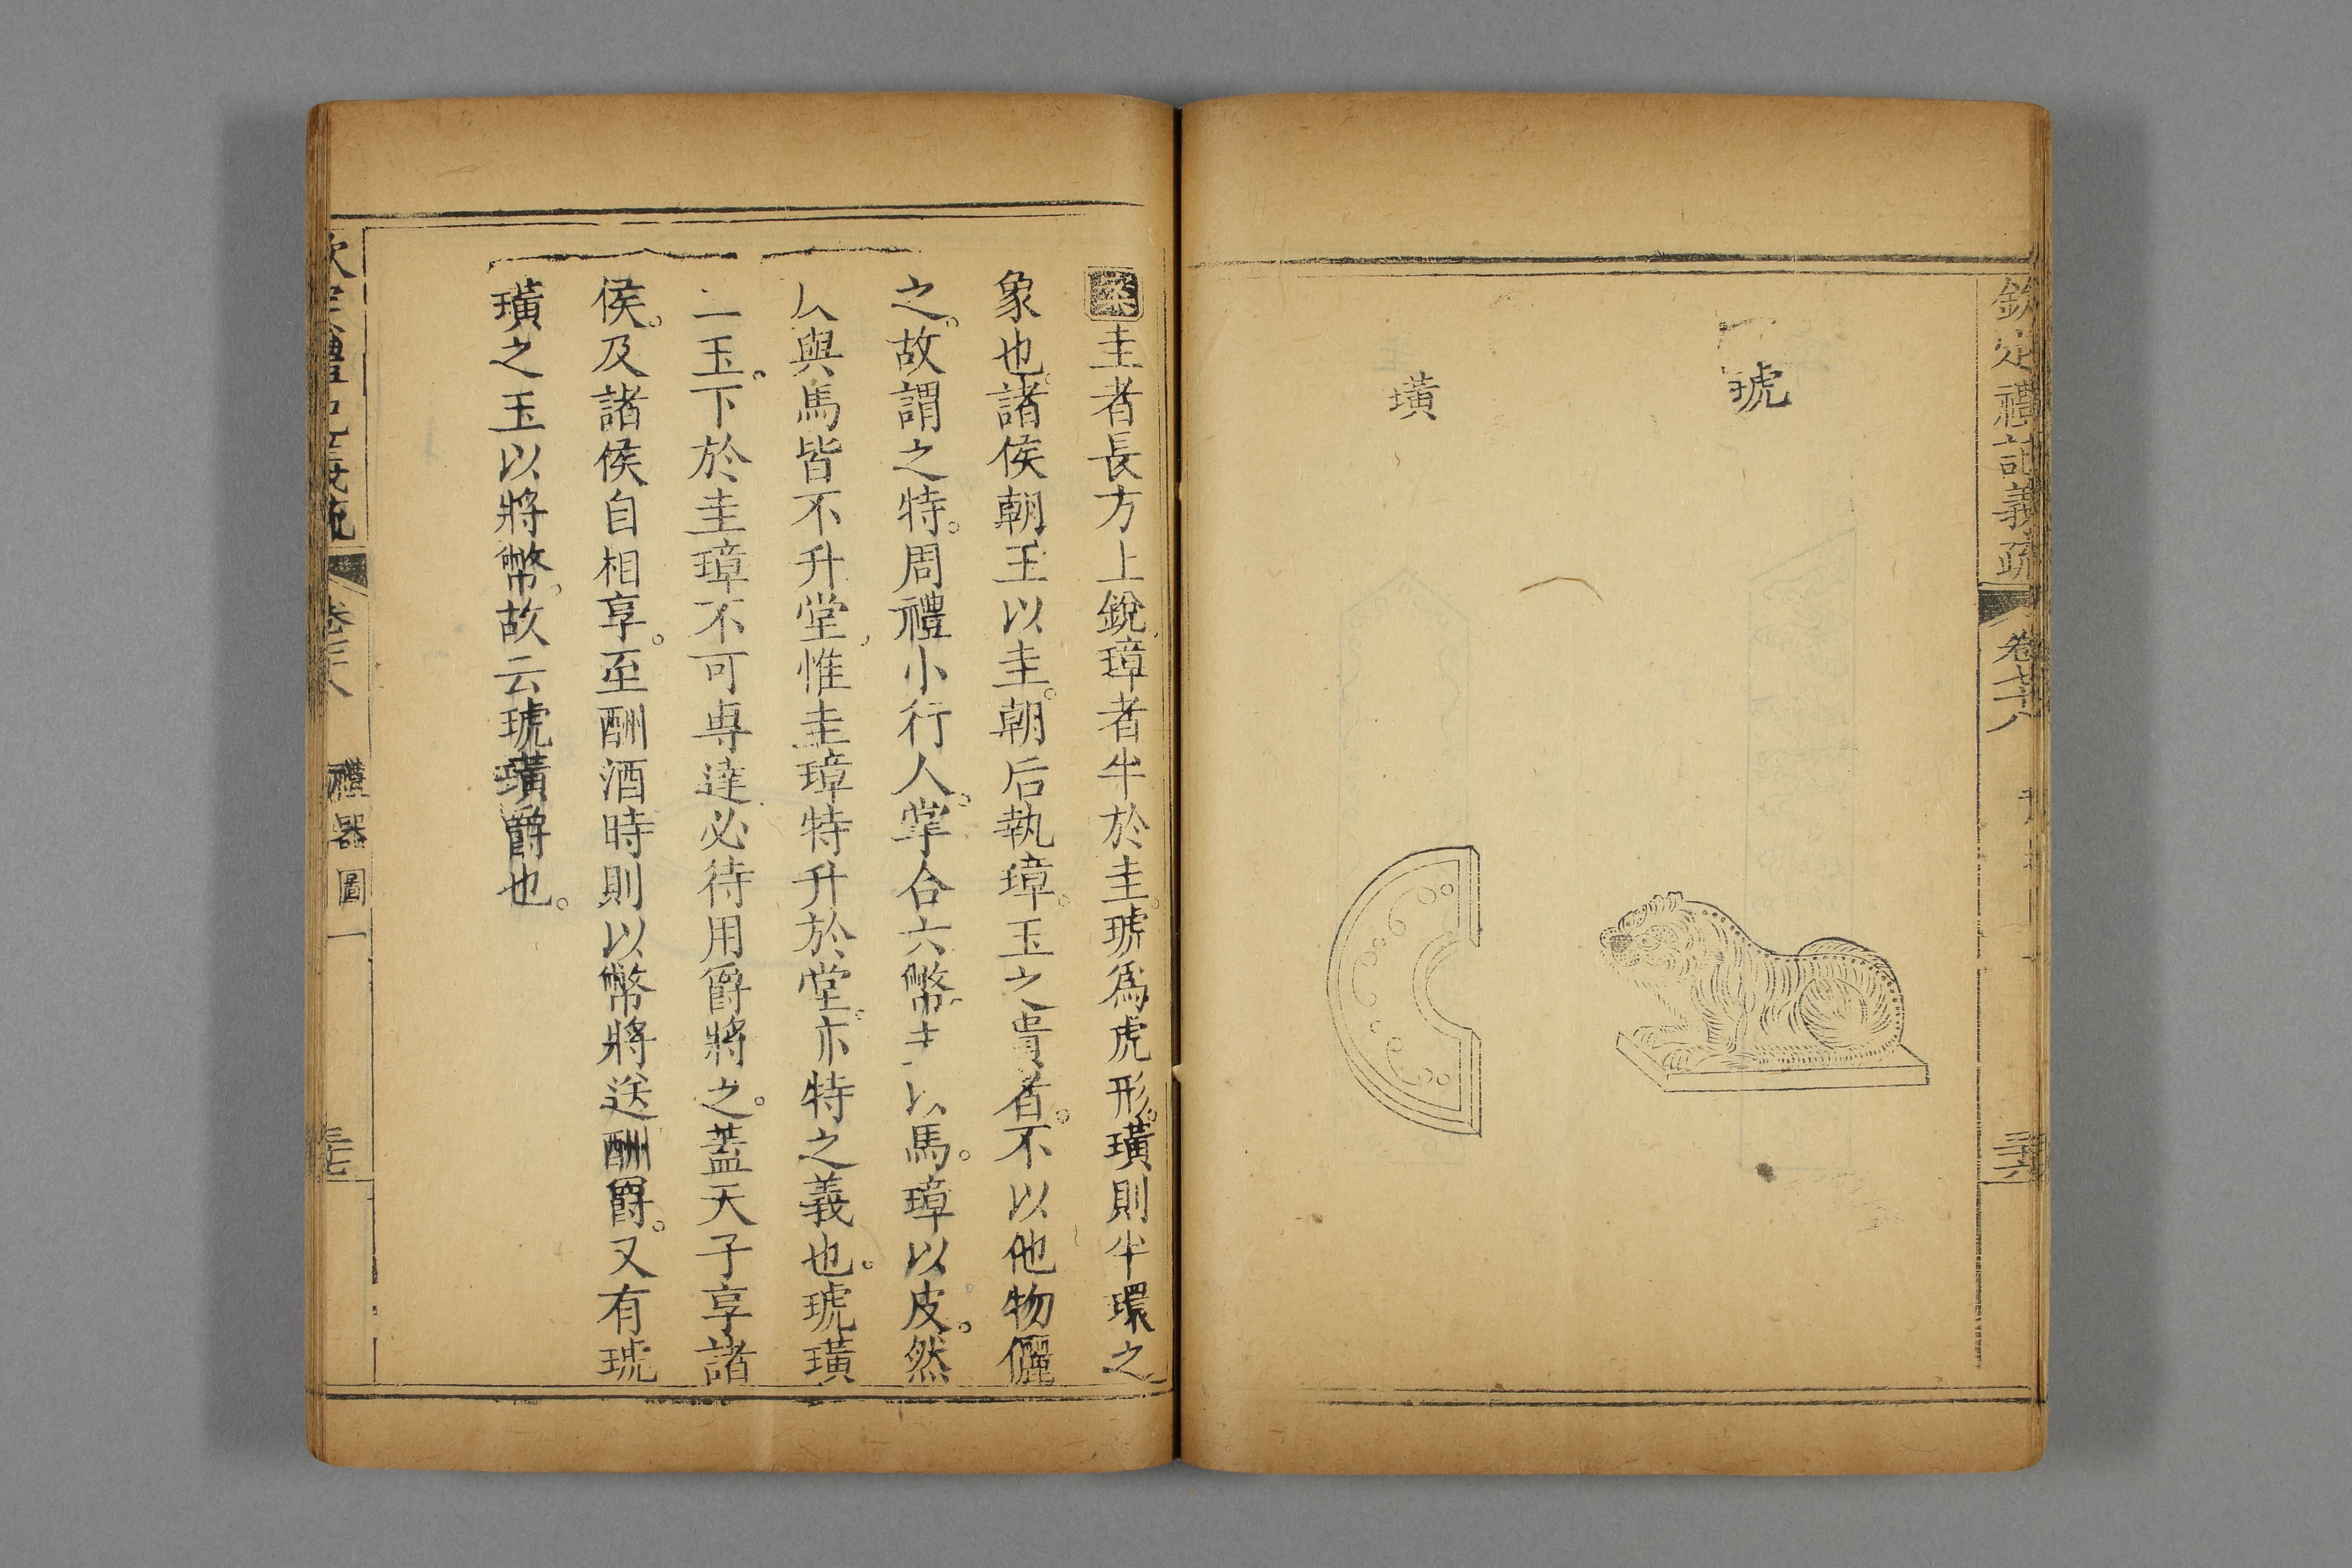 欽定禮記義疏
卷七十八
三十六
琥
璜
案圭者長方上銳璋者半於圭。琥爲虎形。璜則半環之
象也。諸侯朝王以圭。朝后執璋。玉之貴者。不以他物儷
之。故謂之特。周禮小行人。掌合六幣。圭以馬。璋以皮。然
皮與馬皆不升堂惟圭璋特升於堂。亦特之義也。琥璜
二玉。下於圭璋不可專達必待用爵將之。蓋天子享諸
侯。及諸侯自相享。至酬酒時則以幣將送酬爵。又有琥
璜之玉以將幣。故云琥璜爵也。
欽定禮記義疏
禮器圖一
三十七